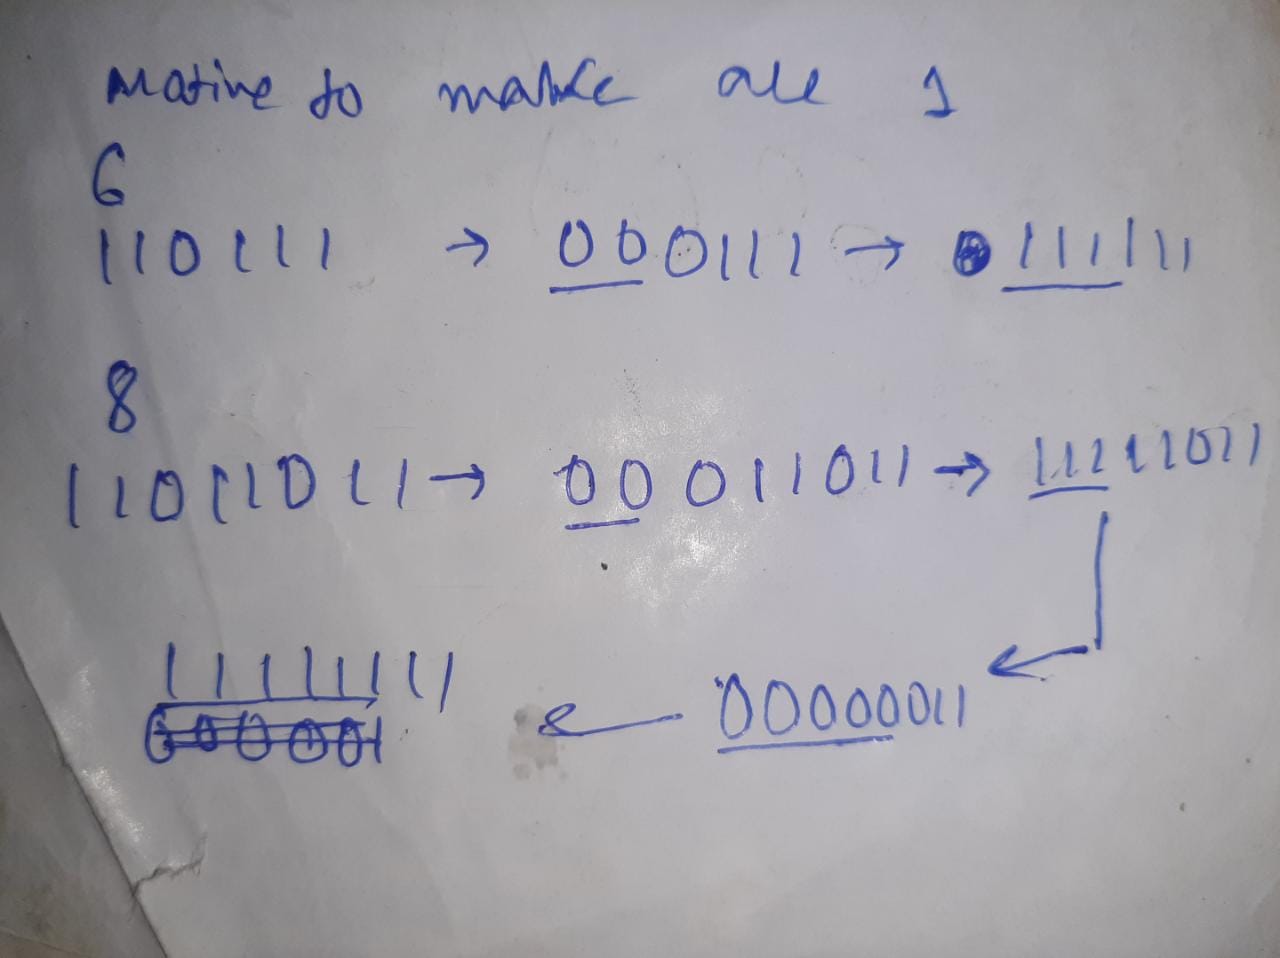 Motive to make all 1
6
110111 → 000111 → 111111
8
11011011 → 00011011 → 11111011
11111111 ← 00000011